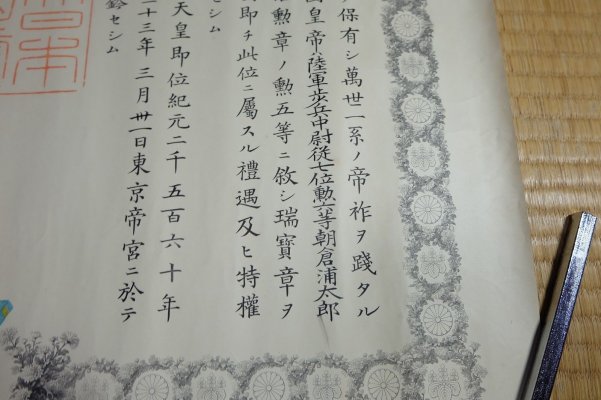 保有シ萬世一系ノ帝祚ヲ踐タル
皇帝ハ陸軍歩兵中尉從七位勲六等朝倉浦太郎
勲章ノ勲五等ニ敘シ瑞寶章ヲ
即チ此位ニ屬スル禮遇及ヒ特權
セシム
天皇即位紀元二千五百六十年
十三年三月卅一日東京帝宮ニ於テ
鈐セシム
日本